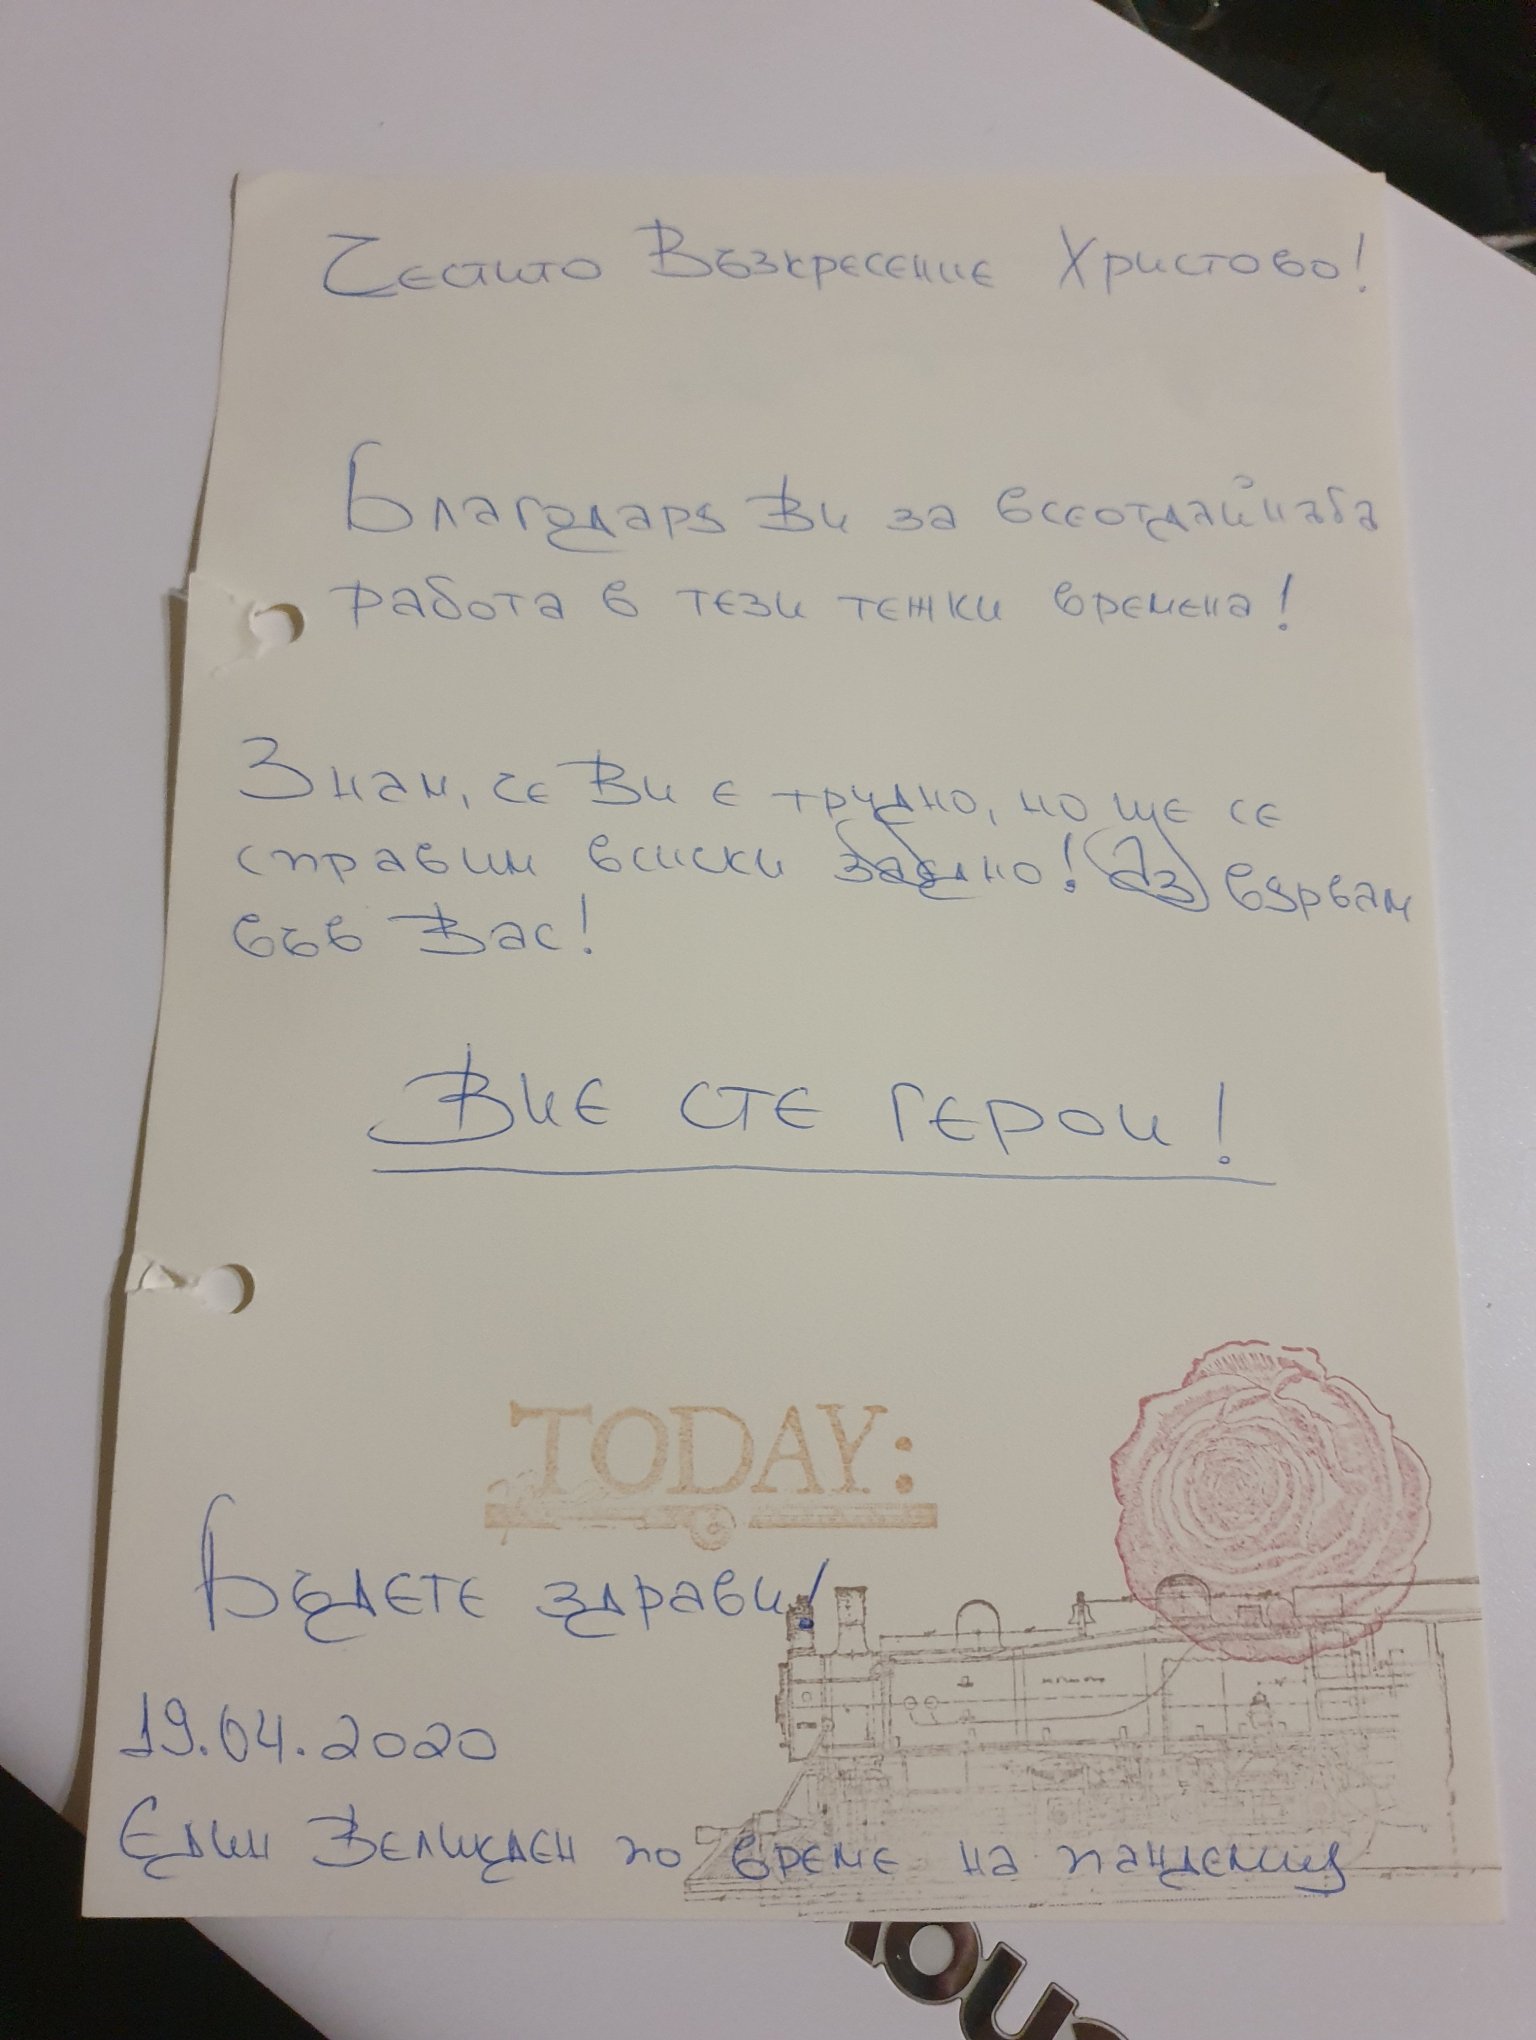 Честито Възкресение Христово!
Благодаря Ви за всеотдайната
работа в тези тежки времена!
Знам, че Ви е трудно, но ще се
справим всички заедно! Аз вярвам
във Вас!
Вие сте герои!
TODAY:
Бъдете здрави!
19.04.2020
Един Великден по време на пандемия